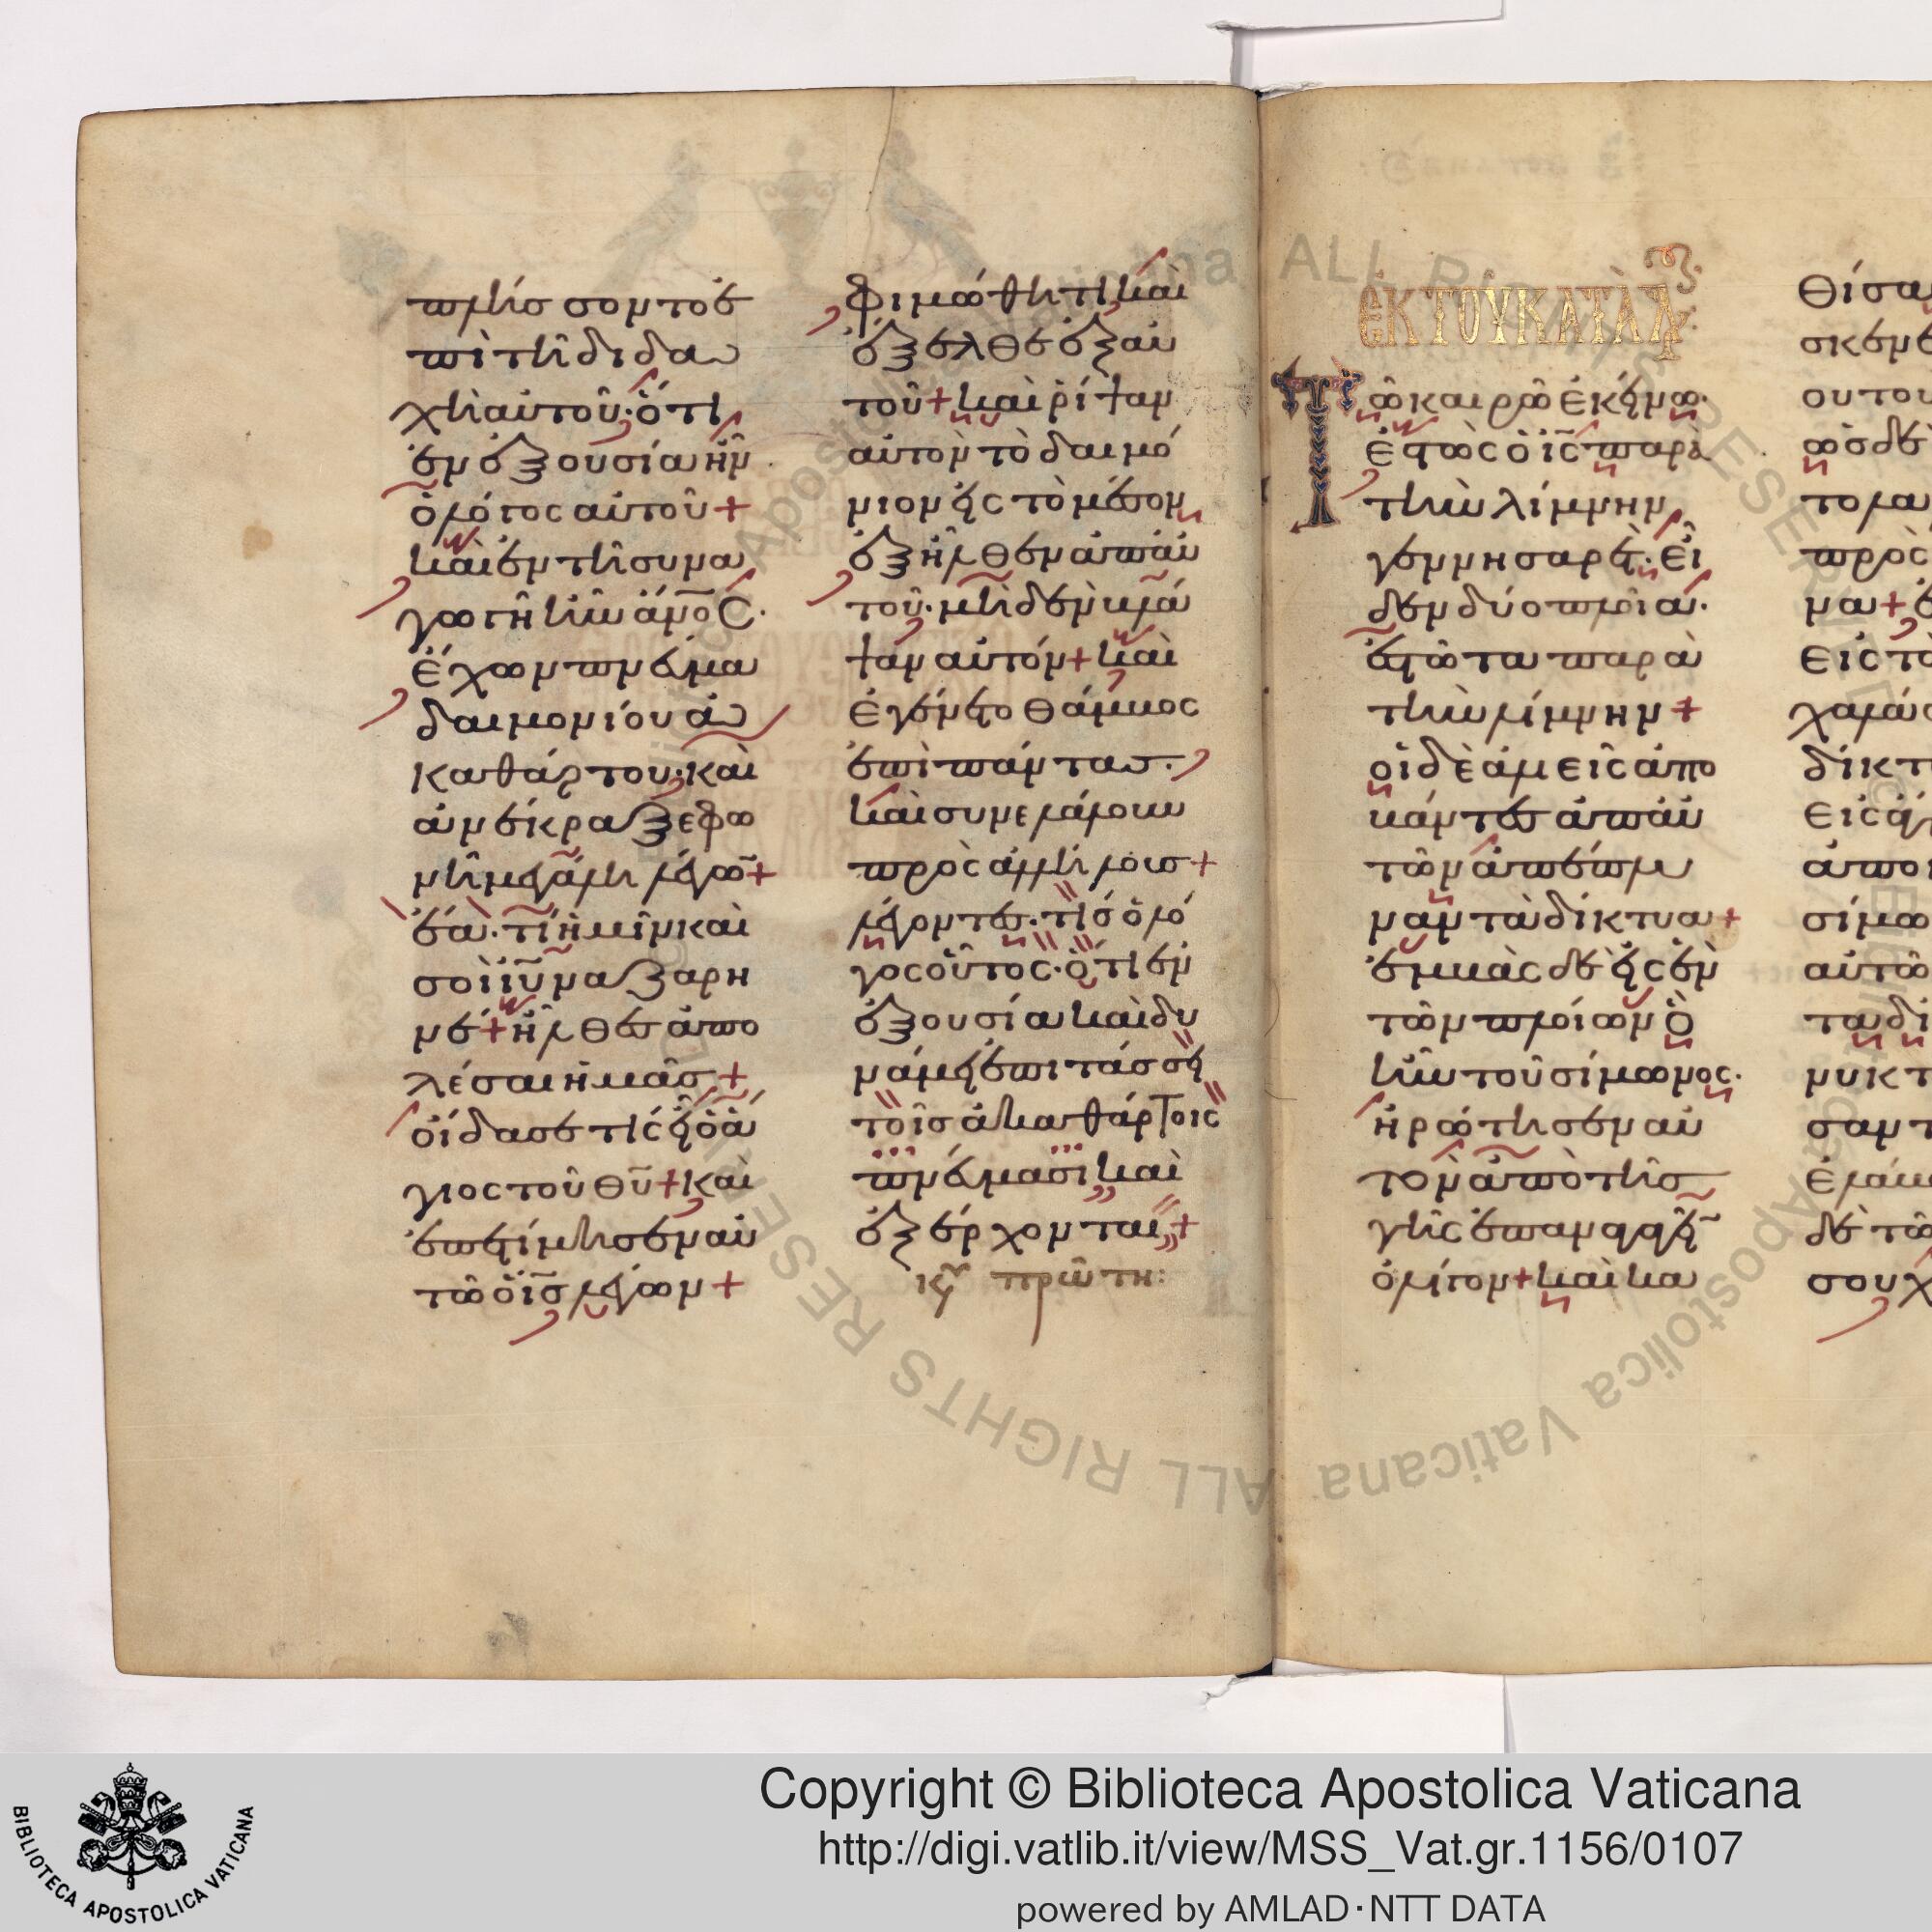 πλήσσοντο ἐ
πὶ τῆ διδα
χῆ αὐτοῦ· ὅτι
ἐν ἐξουσία ἦν
ὁ λόγος αὐτοῦ+
καὶ ἐν τῆ συνα
γωγῆ ἦν ἄν̅ο̅ς.
ἔχων πνεύμα
δαιμονίου ἀ
καθάρτου· καὶ
ἀνέκραξε φω
νῆ μεγάλη λέγων+
ἔα· τί ἡμῖν καὶ
σοὶ ἰ̅υ̅ ναζαρη
νέ+ ἦλθες ἀπο
λέσαι ἡμᾶς+
οἶδα σε τίς εἶ ὁ ἅ
γιος τοῦ θ̅υ̅+ καὶ
ἐπετίμησεν αὐ
τῶ ὁ ἰ̅ς̅ λέγων+
φιμώθητι καὶ
ἔξελθε ἐξ αὐ
τοῦ+ καὶ ρίψαν
αὐτὸν τὸ δαιμό
νιον εἰς τὸ μέσον
ἐξῆλθεν ἀπ' αὐ
τοῦ· μηδὲν βλά
ψαν αὐτόν+ καὶ
ἐγένετο θάμβος
ἐπὶ πάντας·
καὶ συνελάλουν
πρὸς ἀλλήλους+
λέγοντες· τίς ὁ λό
γος οὗτος· ὅτι ἐν
ἐξουσία καὶ δυ
νάμει ἐπιτάσσει
τοῖς ἀκαθάρτοις
πνεύμασι καὶ
ἐξέρχονται+
κυ πρώτη:
ἐκ τοῦ κατὰ λ
Τῶ καιρῶ ἐκείνω·
ἑστὼς ὁ ἰ̅ς̅ παρὰ
τὴν λίμνην
γεννησαρέτ· εἶ
δεν δύο πλοῖα·
ἑστῶτα παρὰ
τὴν λίμνην+
οἱ δὲ ἁλιεῖς ἀπο
βάντες ἀπ' αὐ
τῶν ἀπέπλυ
ναν τὰ δίκτυα+
ἐμβὰς δὲ εἰς ἓν
τῶν πλοίων ὃ
ἦν τοῦ σίμωνος·
ἠρώτησεν αὐ
τὸν ἀπὸ τῆς
γῆς ἐπαναγαγεῖν
ὀλίγον+ καὶ κα
θίσα
σκεν ἐ
ου του
ὡς δὲ
το λα
πρὸς
να+ ἐ
εἰς τὸ
χαλάσ
δίκτ
εἰς ἄγ
ἀπο
σίμω
αὐτῶ
τα δι
νυκτ
σαντ
ἐλάβ
δὲ τῶ
σου χ
Copyright © Biblioteca Apostolica Vaticana
http://digi.vatlib.it/view/MSS_Vat.gr.1156/0107
powered by AMLAD·NTT DATA
BIBLIOTECA APOSTOLICA VATICANA